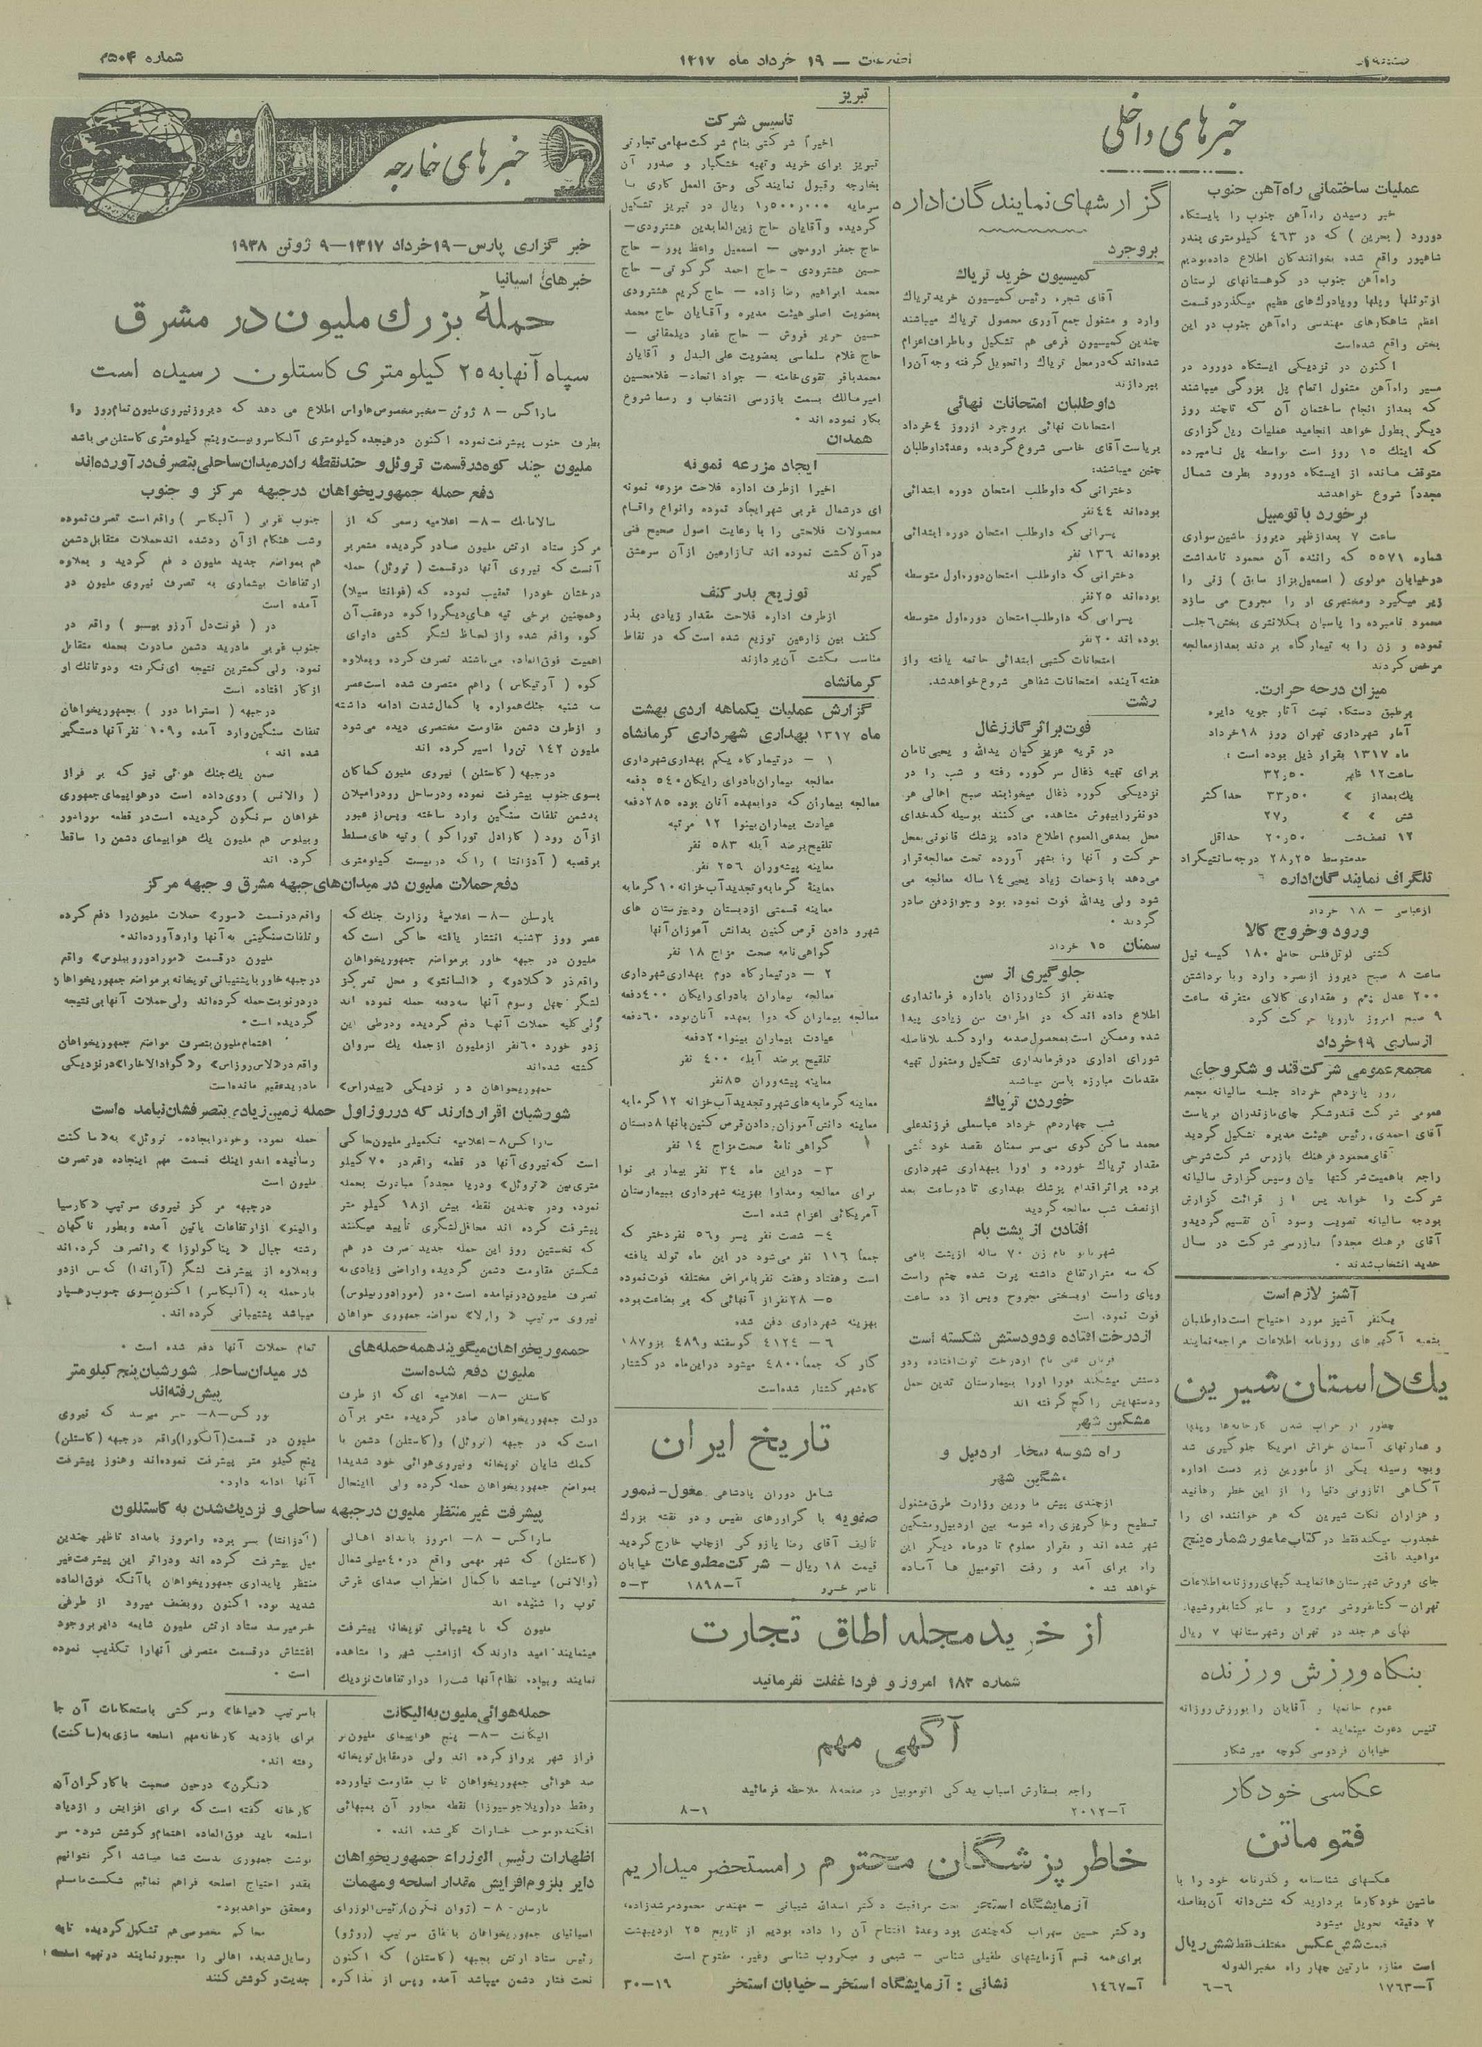 اطلاعات — ۱۹ خرداد ماه ۱۳۱۷
شماره ۳۵۰۴
خبرهای داخلی
عملیات ساختمانی راه‌آهن جنوب
خبر رسیدن راه‌آهن جنوب را بایستگاه
دورود (بحرین) که در ۴۶۳ کیلومتری بندر
شاهپور واقع شده بخوانندگان اطلاع داده‌بودیم
راه‌آهن جنوب در کوهستانهای لرستان
ازتونلها وپلها وویادوک‌های عظیم میگذردوقسمت
اعظم شاهکارهای مهندسی راه‌آهن جنوب در این
بخش واقع شده‌است
اکنون در نزدیکی ایستگاه دورود در
مسیر راه‌آهن مشغول اتمام پل بزرگی میباشند
که بمداز انجام ساختمان آن که تاچند روز
دیگر بطول خواهد انجامید عملیات ریل‌گزاری
که اینك ۱۵ روز است بواسطه پل نامبرده
متوقف مانده از ایستگاه دورود بطرف شمال
مجدداً شروع خواهدشد
برخورد باتومبیل
ساعت ۷ بعدازظهر دیروز ماشین‌سواری
شماره ۵۵۷۱ که راننده آن محمود نامداشت
درخیابان مولوی (اسمعیل‌بزاز سابق) زنی را
زیر میگیرد ومختصری او را مجروح می سازد
محمود نامبرده را پاسبان بکلانتری بخش۶جلب
نموده و زن را به تیمارگاه بر دند بعدازمعالجه
مرخص کردند
میزان درجه حرارت.
برطبق دستگاه ثبت آثار جویه دایره
آمار شهرداری تهران روز ۱۸خرداد
ماه ۱۳۱۷ بقرار ذیل بوده است :
ساعت۱۲ ظهر ۳۲٫۵۰
یك‌بعداز » ۳۳٫۵۰ حداکثر
شش » » ۲۷٫
۱۲ نصف‌شب ۲۰٫۵۰ حداقل
حدمتوسط ۲۸٫۲۵ درجه‌سانتیگراد
تلگراف نمایندگان‌اداره
ازعباسی — ۱۸ خرداد
ورود وخروج کالا
ساعت ۸ صبح دیروز ازبصره وارد وبا برداشتن
۲۰۰ عدل پشم و مقداری کالای متفرقه ساعت
۹ صبح امروز باروپا حرکت کرد
ازساری ۱۹خرداد
مجمع‌عمومی شرکت‌قند و شکروچای
روز پازدهم خرداد جلسه سالیانه مجمع
عمومی شرکت قندوشکر چای‌مازندران بریاست
آقای احمدی، رئیس هیئت مدیره تشکیل گردید
آقای‌محمودفرهنك بازرس شرکت‌شرحی
راجع باهمیت‌شرکتها بیان وسپس‌گزارش سالیانه
شرکت را خواند پس از قرائت گزارش
بودجه سالیانه تصویب وسود آن تقسیم‌گردیدو
آقای فرهنك مجدداً ببازرسی شرکت در سال
جدید انتخاب‌شدند ٠
آشپز لازم است
یکنفر آشپز مورد احتیاج است‌داوطلبان
بشعبه آگهی های روزنامه اطلاعات مراجعه‌نمایند
یك‌داستان‌شیرین
و عمارتهای آسمان خراش امریکا جلوگیری شد
وبچه وسیله یکی از مامورین زبر دست اداره
آگاهی اتازونی دنیا را از این خطر رهانید
و هزاران نکات شیرین که هر خواننده ای را
مجذوب میکندفقط در کتاب مامور شماره پنج
خواهید یافت
جای فروش شهرستان‌ها نمایندگیهای‌روزنامه‌اطلاعات
تهران — کتابفروشی مروج و سایر کتابفروشیها.
بهای هرجلد در تهران وشهرستانها ۷ ریال
بنگاه ورزش ورزنده
عموم خانمها و آقایان را بورزش روزانه
تنیس دعوت مینماید ٠
خیابان فردوسی کوچه میرشکار
عکاسی خودکار
فتوماتن
عکسهای شناسنامه و گذرنامه خود را با
ماشین خودکارما بردارید که شش‌دانه آن‌بفاصله
۷ دقیقه تحویل میشود
قیمت‌شش‌عکس مختلف‌فقط‌شش‌ریال
است مغازه مارتین چهار راه مخبرالدوله
آ—۱۷۶۳ ۶—۶
گزارشهای نمایندگان اداره
بروجرد
کمیسیون خرید تریاك
آقای شجره رئیس‌کمیسیون خریدتریاك
وارد و مشغول جمع آوری محصول تریاك میباشند
چندین کمیسیون فرعی هم تشکیل وباطراف‌اعزام
شده‌اند که‌درمحل تریاك راتحویل‌گرفته وجه‌آن‌را
بپردازند
داوطلبان امتحانات نهائی
امتحانات نهائی بروجرد ازروز ٤خرداد
بریاست‌آقای خامسی شروع‌گردیده وعدهٔ‌داوطلبان
چنین میباشند:
دخترانی که داوطلب امتحان دوره ابتدائی
بوده‌اند ٤٤نفر
پسرانی که داوطلب امتحان دوره ابتدائی
بوده‌اند ۱۳۶ نفر
دخترانی که داوطلب امتحان‌دوره‌اول متوسطه
بوده‌اند ۲۵نفر
پسرانی که داوطلب امتحان دوره‌اول متوسطه
بوده اند ۲۰نفر
امتحانات کتبی ابتدائی خاتمه یافته واز
هفته آینده امتحانات شفاهی شروع‌خواهدشد.
رشت
فوت‌براثرگاززغال
در قریه عزیزکیان یدالله و یحیی‌نامان
برای تهیه ذغال سرکوره رفته و شب را در
نزدیکی کوره ذغال میخوابند صبح اهالی هر
دونفررابیهوش مشاهده می کنند بوسیله کدخدای
محل بمدعی‌العموم اطلاع داده پزشك قانونی‌بمحل
حرکت و آنها را بشهر آورده تحت معالجه‌قرار
می‌دهد بازحمات زیاد یحیی۱٤ساله معالجه می
شود ولی یدالله فوت نموده بود وجوازدفن صادر
گردید ٠
سمنان ۱۵ خرداد
جلوگیری از سن
چندنفر از کشاورزان باداره فرمانداری
اطلاع داده اند که در اطراف سن زیادی پیدا
شده وممکن است‌بمحصول‌صدمه واردکند بلافاصله
شورای اداری درفرمانداری تشکیل ومشغول تهیه
مقدمات مبارزه باسن میباشد
خوردن تریاك
شب چهاردهم خرداد عباسعلی فرزندعلی
محمد ساکن کوی سی‌سر سمنان بقصد خود کشی
مقدار تریاك خورده و اورا ببهداری شهرداری
برده براثراقدام پزشك بهداری تادوساعت بعد
ازنصف شب معالجه‌گردید
افتادن از پشت بام
شهربانو نام زن ۷۰ ساله ازپشت بامی
که سه مترارتفاع داشته پرت شده چشم راست
وپای راست اوبسختی مجروح وپس از ده ساعت
فوت نموده است
ازدرخت افتاده ودودستش شکسته است
قربان علی نام ازدرخت توت‌افتاده ودو
دستش میشکند فوراً اورا ببیمارستان تدین حمل
ودستهایش راگچ گرفته اند
مشکین شهر
راه شوسه میان اردبیل و
مشگین شهر
ازچندی پیش مامورین وزارت طرق‌مشغول
تسطیح وخاکریزی راه شوسه بین اردبیل‌ومشگین
شهر شده اند و بقرار معلوم تادوماه دیگر این
راه برای آمد و رفت اتومبیل ها آماده
خواهد شد ٠
تبریز
تاسیس شرکت
اخیراً شرکتی بنام شرکت‌سهامی تجارتی
تبریز برای خرید وتهیه خشگبار و صدور آن
بخارجه وقبول نمایندگی وحق العمل کاری با
سرمایه ۱٫۵۰۰٫۰۰۰ ریال در تبریز تشکیل
گردیده وآقایان حاج زین‌العابدین هشترودی—
حاج جعفر ارومچی — اسمعیل واعظ پور — حاج
حسین هشترودی — حاج احمد گرگوتی — حاج
محمد ابراهیم رضا زاده — حاج‌کریم هشترودی
بعضویت اصلی‌هیئت مدیره وآقایان حاج محمد
حسین حریر فروش — حاج غفار دیلمقانی —
حاج غلام سلماسی بعضویت علی البدل و آقایان
محمدباقر تقوی‌خامنه — جواد اتحاد— غلامحسین
امیرمالك بسمت بازرسی انتخاب و رسماً شروع
بکار نموده اند ٠
همدان
ایجاد مزرعه نمونه
اخیراً ازطرف اداره فلاحت مزرعه نمونه
ای درشمال غربی شهرایجاد نموده وانواع واقسام
محصولات فلاحتی را با رعایت اصول صحیح فنی
درآن‌کشت نموده اند تازارعین ازآن سرمشق
گیرند
توزیع بذرکنف
ازطرف اداره فلاحت مقدار زیادی بذر
کنف بین زارعین توزیع شده است‌که در نقاط
مناسب بکشت آن‌بپردازند
کرمانشاه
گزارش عملیات یکماهه اردی بهشت
ماه ۱۳۱۷ بهداری شهرداری کرمانشاه
۱ — درتیمارگاه یکم بهداری‌شهرداری
معالجه بیماران‌بادوای رایگان۵٤۰ دفعه
معالجه بیماران که دوابعهده آنان بوده ۲۸۵دفعه
عیادت بیماران‌بینوا ۱۲ مرتبه
تلقیح‌برضد آبله ۵۸۳ نفر
معاینه پیشه‌وران ۲۵۶ نفر
معاینهٔ گرمابه‌وتجدیدآب‌خزانه ۱۰گرمابه
معاینه قسمتی ازدبستان ودبیرستان های
شهرو دادن قرص‌کنین بدانش آموزان‌آنها
گواهی‌نامه صحت مزاج ۱۸ نفر
۲ — درتیمارگاه دوم بهداری‌شهرداری
معالجه بیماران بادوای‌رایگان ٤۰۰دفعه
معالجه بیماران‌که دوا بعهده آنان‌بوده ۶۰دفعه
عیادت بیماران بینوا۲۰دفعه
تلقیح برضد آبله ٤۰۰ نفر
معاینه پیشه وران ۸۵نفر
معاینه‌گرمابه‌های‌شهروتجدیدآب‌خزانه ۱۲گرمابه
معاینه دانش‌آموزان، دادن‌قرص‌کنین بانها ۸دبستان
گواهی نامهٔ صحت‌مزاج ۱٤ نفر
۳— دراین ماه ۳٤ نفر بیمار بی نوا
برای معالجه ومداوا بهزینه شهرداری ببیمارستان
آمریکائی اعزام شده است
٤— شصت نفر پسر و۵۶ نفردختر که
جمعاً ۱۱۶ نفر می‌شود در این ماه تولد یافته
است وهفتاد وهفت نفر بامراض مختلفه فوت‌نموده
۵— ۲۸نفراز آنهائی که بی بضاعت‌بوده
بهزینه شهرداری دفن شده
۶— ٤۱۲٤ گوسفند و٤۸۹ بزو۱۸۷
گاو که جمعاً ٤۸۰۰ میشود دراین‌ماه درکشتار
گاه‌شهر کشتار شده‌است
تاریخ ایران
شامل دوران پادشاهی مغول-تیمور
صفویه با گراورهای نفیس و دو نقشه بزرگ
تألیف آقای رضا پازوکی ازچاپ خارج‌گردید
قیمت ۱۸ ریال — شرکت‌مطبوعات خیابان
ناصر خسرو آ—۱۸۹۸ ۳—۵
از خریدمجله اطاق تجارت
شماره ۱۸۳ امروز و فردا غفلت نفرمائید
آگهی مهم
راجع بسفارش اسباب یدکی اتوموبیل در صفحه۸ ملاحظه فرمائید
آ—۲۰۱۲ ۱—۸
خاطر پزشگان محترم رامستحضر میداریم
آزمایشگاه استخر تحت مراقبت دکتر اسدالله شیبانی — مهندس محمودمرشدزاده،
ودکتر حسین سهراب که‌چندی بود وعدهٔ افتتاح آن را داده بودیم از تاریخ ۲۵ اردیبهشت
برای‌همه قسم آزمایشهای طفیلی شناسی — شیمی و میکروب شناسی وغیره مفتوح است
آ—۱٤۶۷ نشانی : آزمایشگاه استخر — خیابان استخر ۱۹—۳۰
خبرهای خارجه
خبرگزاری پارس—۱۹خرداد ۱۳۱۷—۹ ژوئن ۱۹۳۸
خبرهای اسپانیا
حملهٔ بزرك ملیون در مشرق
سپاه آنها به ۲۵ کیلومتری کاستلون رسیده است
ساراگس — ۸ ژوئن — مخبرمخصوص هاواس اطلاع می دهد که دیروزنیروی ملیون تمام‌روز را
بطرف جنوب پیشرفت‌نموده اکنون درهیجده‌کیلومتری آلبکاسروبیست‌وپنج کیلومتری کاستلن‌می‌باشد
ملیون چند کوه درقسمت تروئل‌و چندنقطه رادرمیدان‌ساحلی‌بتصرف‌درآورده‌اند
دفع حمله جمهوریخواهان درجبهه مرکز و جنوب
سالامانك —۸— اعلامیه رسمی که از
مرکز ستاد ارتش ملیون صادرگردیده مشعربر
آنست‌که نیروی آنها درقسمت (تروئل) حمله
درخشان خودرا تعقیب نموده
وهمچنین برخی تپه های‌دیگرراکه درعقب‌آن
کوه واقع شده وازلحاظ لشگر کشی دارای
اهمیت فوق‌العاده می‌باشند تصرف کرده وبعلاوه
سه شنبه جنك‌همواره با کمال‌شدت ادامه داشته
و ازطرف دشمن مقاومت مختصری دیده می‌شود
ملیون ۱٤۲ تن‌را اسیر کرده اند
درجبهه (کاستلن) نیروی ملیون کماکان
بسوی‌جنوب پیشرفت نموده ودرساحل رودرامبلان
بدشمن تلفات سنگین وارد ساخته وپس‌ازعبور
جنوب غربی (آلبکاسر) واقع است تصرف‌نموده
وشب هنگام ازآن ردشده اند حملات متقابل‌دشمن
هم بمواضع جدید ملیون دفع گردید و بعلاوه
ارتفاعات بیشماری به تصرف نیروی ملیون در
آمده است
جنوب غربی مادرید دشمن مبادرت بحمله متقابل
نمود، ولی کمترین نتیجه ای‌نگرفته ودوتانك او
ازکار افتاده است
درجبهه (استرامادور) بجمهوریخواهان
تلفات سنگین‌وارد آمده و۱۰۹ نفرآنها دستگیر
شده اند،
ضمن یك‌جنك هوائی نیز که بر فراز
(والانس) روی‌داده است دوهواپیمای جمهوری
خواهان سرنگون گردیده است
کرده اند
دفع‌حملات ملیون در میدان‌های‌جبهه مشرق و جبهه مرکز
بارسلن —۸— اعلامیهٔ وزارت جنك که
عصر روز ۳شنبه انتشار یافته حاکی است که
ملیون در جبهه خاور برمواضع جمهوریخواهان
ولی‌کلیه حملات آنها دفع گردیده ودرطی این
زدو خورد ۶۰نفر ازملیون ازجمله یك سروان
کشته شده‌اند
واقع درقسمت «سور» حملات ملیون‌را دفع کرده
وتلفات سنگینی به آنها وارد آورده‌اند٠
ملیون درقسمت «مورادوروبیلوس» واقع
درجبهه خاور با پشتیبانی توپخانه برمواضع جمهوریخواهان
دردونوبت‌حمله کرده‌اند ولی حملات آنها بی‌نتیجه
گردیده است٠
اهتمام‌ملیون‌بتصرف مواضع جمهوریخواهان
مادرید عقیم مانده‌است
شورشیان اقراردارند که درروزاول حمله زمین‌زیادی بتصرفشان‌نیامده است
ساراگس—۸— اعلامیه تکمیلی ملیون‌حاکی
است که‌نیروی‌آنها در قطعه واقع‌در ۷۰کیلو
متری‌بین «تروئل» ودریا مجدداً مبادرت بحمله
نموده ودر چندین نقطه بیش‌از۱۸ کیلو متر
پیشرفت کرده اند محافل‌لشگری تأیید میکنند
که نخستین روز این حمله جدید صرف در هم
شکستن مقاومت دشمن گردیده واراضی زیادی‌به
تصرف ملیون‌درنیامده است٠
ملیون است
رشته جبال «پناگولوزا» راتصرف کرده‌اند
میباشد پشتیبانی کرده‌اند.
جمهوریخواهان‌میگویند همه‌حمله‌های
ملیون دفع شده‌است
کاستلن —۸— اعلامیه ای‌که از طرف
دولت جمهوریخواهان صادر گردیده مشعر برآن
است که در جبهه (تروئل) و(کاستلن) دشمن با
کمك شایان توپخانه ونیروی‌هوائی خود شدیداً
بمواضع جمهوریخواهان حمله‌کرده ولی تااینحال
تمام حملات آنها دفع شده است ٠
در میدان‌ساحلی شورشیان‌پنج‌کیلومتر
پیش‌رفته‌اند
پنج کیلو متر پیشرفت نموده‌اند وهنوز پیشرفت
آنها ادامه دارد٠
پیشرفت غیرمنتظر ملیون درجبهه ساحلی‌و نزدیك‌شدن به کاستللون
ساراگس —۸— امروز بامداد اهالی
(کاستلن) که شهر مهمی واقع در۴۰میلی‌شمال
(والانس) میباشد باکمال اضطراب صدای غرش
توپ را شنیده اند
ملیون که با پشتیبانی توپخانه پیشرفت
مینمایند، امید دارند که ازامشب شهر را مشاهده
(آدزانتا) بسر برده وامروز بامداد تاظهر چندین
میل پیشرفت کرده اند ودراثر این پیشرفت‌غیر
منتظر پایداری جمهوریخواهان باآنکه فوق‌العاده
شدید بود، اکنون روبضعف میرود از طرفی
خبرمیرسد ستاد ارتش ملیون شایعه دایربروجود
اغتشاش درقسمت متصرفی آنهارا تکذیب نموده
است ٠
حمله‌هوائی ملیون‌به‌الیکانت
الیکانت —۸— پنج هواپیمای ملیون‌بر
فراز شهر پروازکرده اند ولی درمقابل‌توپخانه
ضد هوائی جمهوریخواهان تاب مقاومت نیاورده
وفقط در(ویلاجوسیوزا) نقطه مجاور آن بمبهائی
افکنده‌وموجب خسارات کلی‌شده اند٠
اظهارات رئیس الوزراء جمهوریخواهان
دایر بلزوم‌افزایش مقدار اسلحه ومهمات
بارسلن — ۸— (ژوان نگرن)رئیس‌الوزرای
اسپانیای جمهوریخواهان باتفاق سرتیپ (روژو)
رئیس ستاد ارتش بجبهه (کاستلن) که اکنون
تحت فشار دشمن میباشد آمده وپس از مذاکره
باسرتیپ «میاخا» وسرکشی باستحکامات آن جا
برای بازدید کارخانه‌مهم اسلحه سازی‌به(ساگنت)
رفته اند٠
«نگرن» درحین صحبت باکارگران‌آن
کارخانه گفته است‌که برای افزایش و ازدیاد
اسلحه باید فوق‌العاده اهتمام‌وکوشش شود٠ سر
نوشت جمهوری بدست شما میباشد اگر نتوانیم
بقدر احتیاج اسلحه فراهم نمائیم شکست‌مامسلم
ومحقق خواهدبود٠
محاکم مخصوصی‌هم تشکیل‌گردیده تابه
وسایل‌شدیده اهالی را مجبورنمایند درتهیه اسلحه
جدیت‌وکوشش کنند